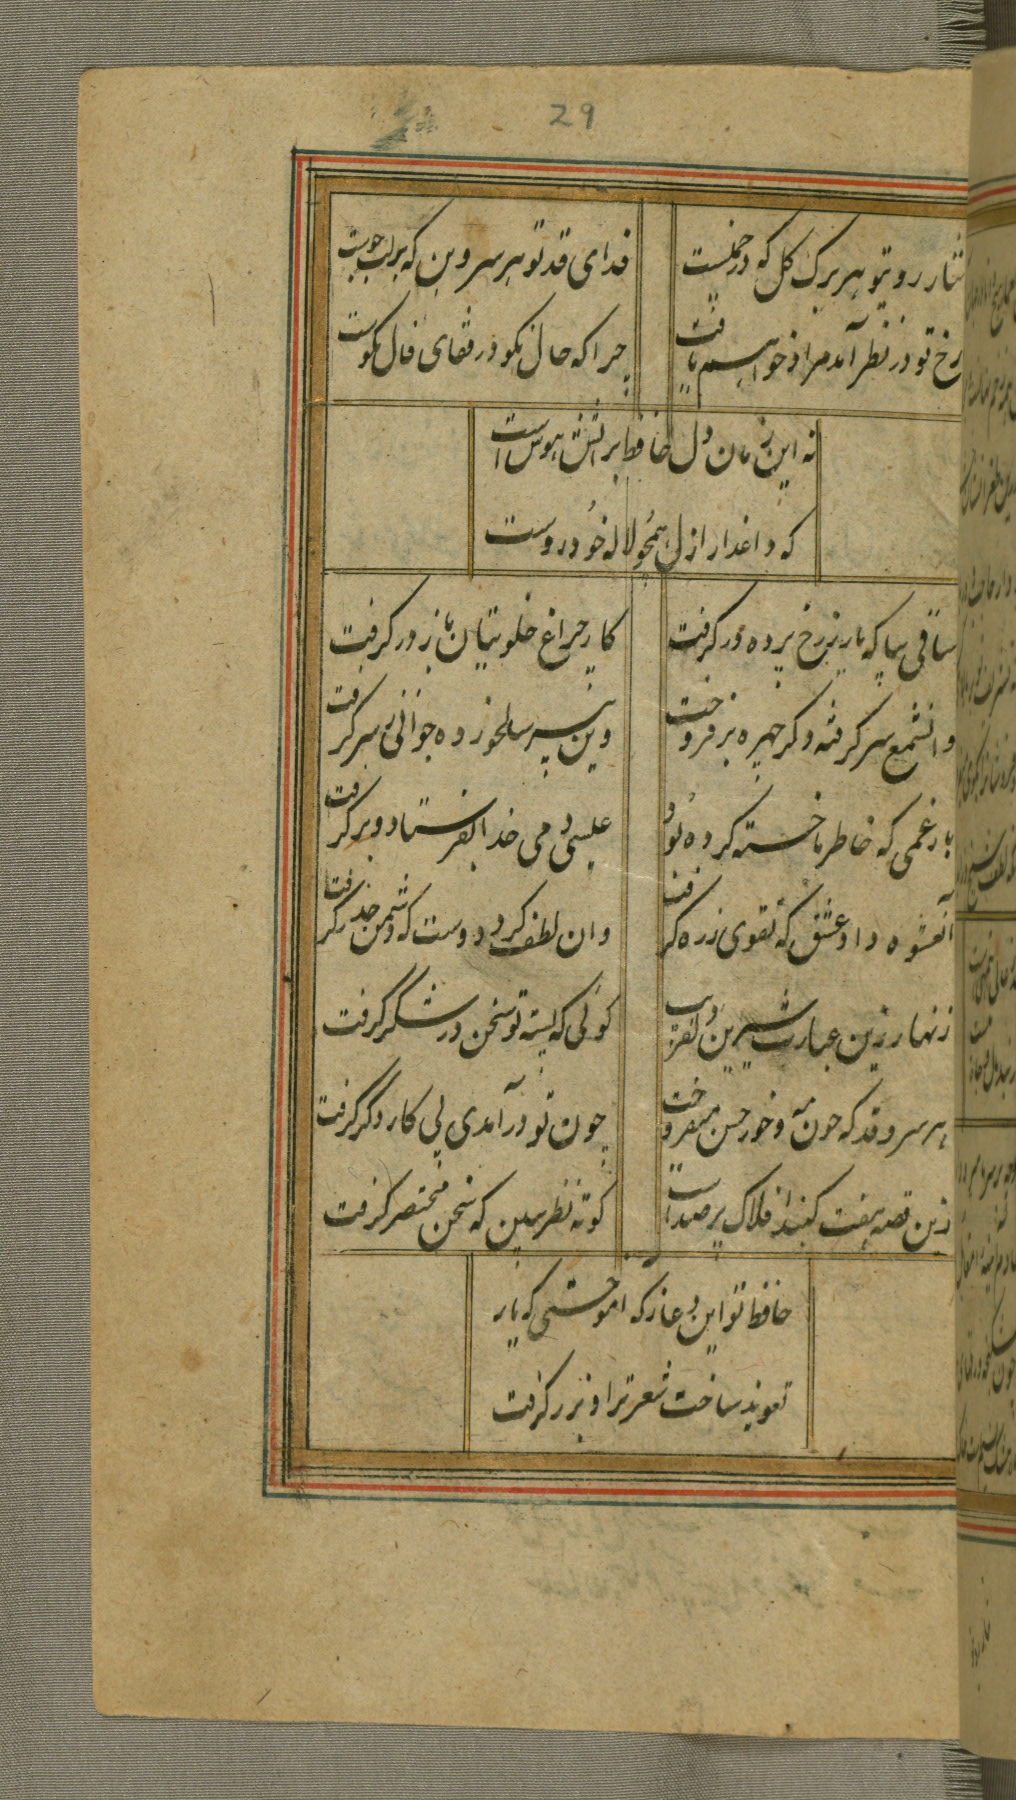 29
نثار روی تو هر برگ گل که در چمنست
فدای قد تو هر سروبن که بر لب جویست
رخ تو در نظر آمد مراد خواهم یافت
چرا که حال نکو در قفای فال نکوست
نه این زمان دل حافظ بر آتش هوس است
که داغدار ازل همچو لاله خودروست
ساقی بیا که یار ز رخ پرده در گرفت
کار چراغ خلوتیان باز در گرفت
وان شمع سر گرفته دگر چهره بر فروخت
وین پیر سالخورده جوانی ز سر گرفت
بار غمی که خاطر ما خسته کرده بود
عیسی دمی خدا بفرستاد و بر گرفت
آن عشوه داد عشق که تقوی ز ره گرفت
وان لطف کرد دوست که دشمن حذر گرفت
زنهار زین عبارت شیرین دلفریب
گوئی که پسته تو سخن در شکر گرفت
هر سرو قد که چون مه و خور حسن میفروخت
چون تو در آمدی پی کار دگر گرفت
زین قصه هفت گنبد افلاک پر صداست
کوته نظر ببین که سخن مختصر گرفت
حافظ تو این دعا ز که آموختی که یار
تعویذ ساخت شعر ترا و بزر گرفت